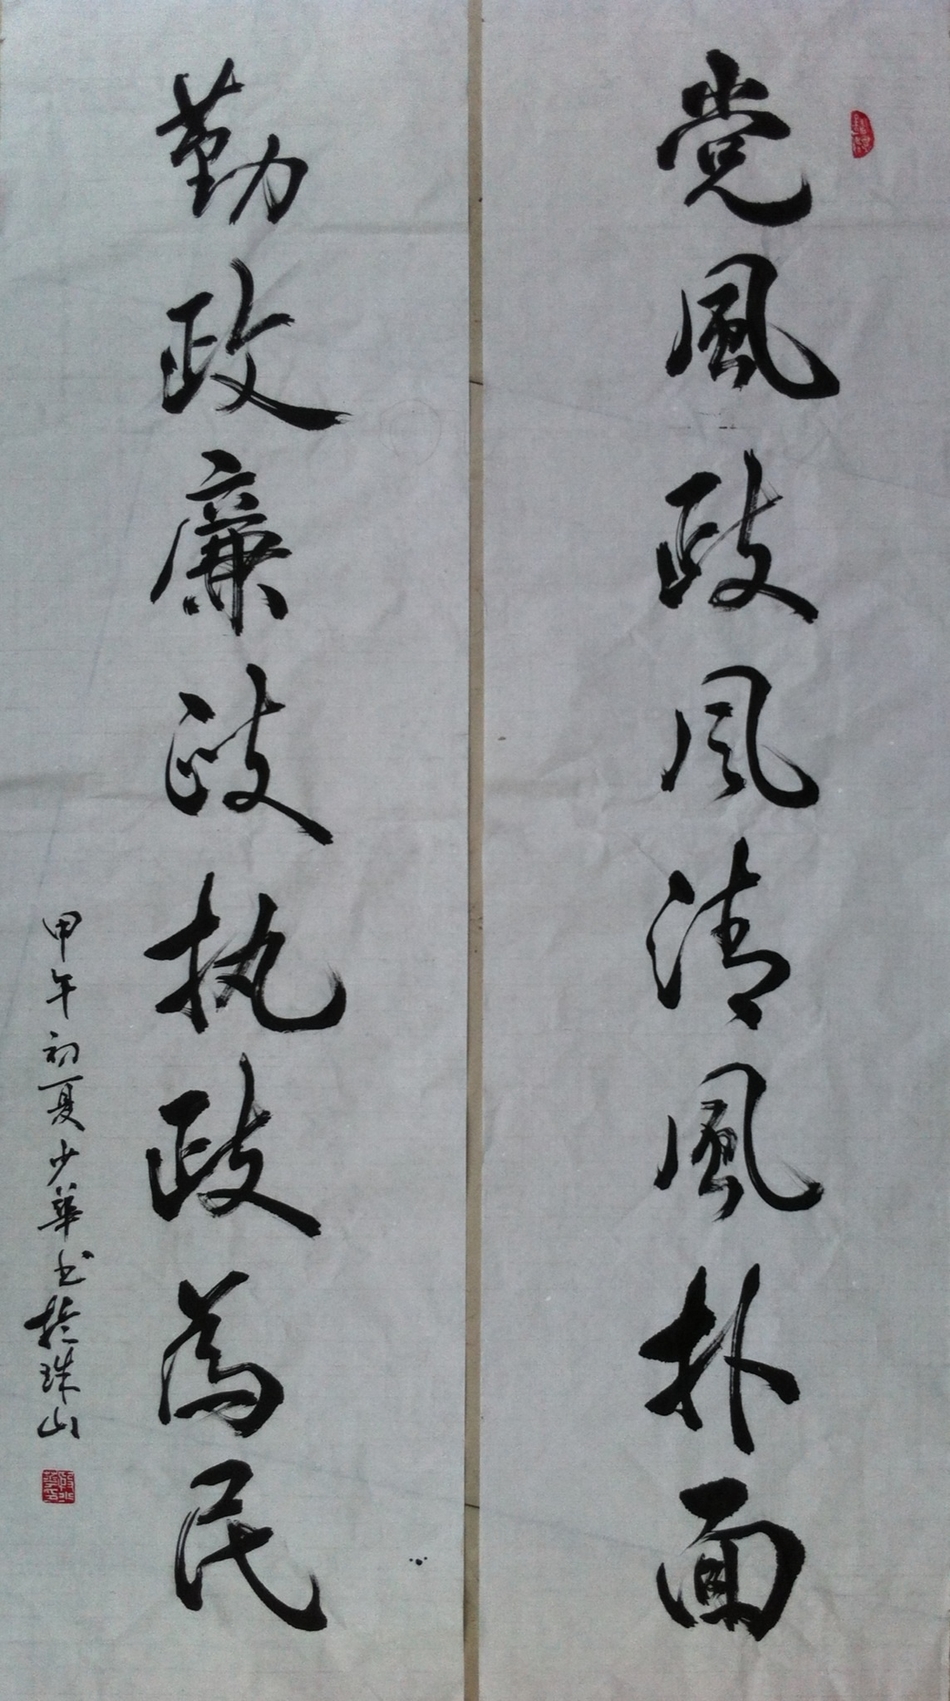 党風政风清風扑面
勤政廉政执政為民
甲午初夏少華书於珠山